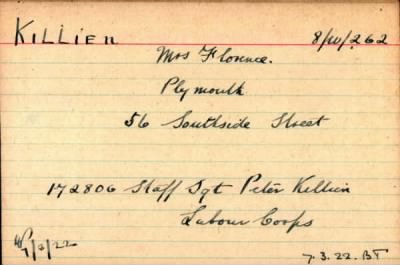 KILLIEN 8/W/262
Mrs Florence.
Plymouth
56 Southside Street
172806 Staff Sgt Peter Killien
Labour Corps
/3/22
7.3.22. BT